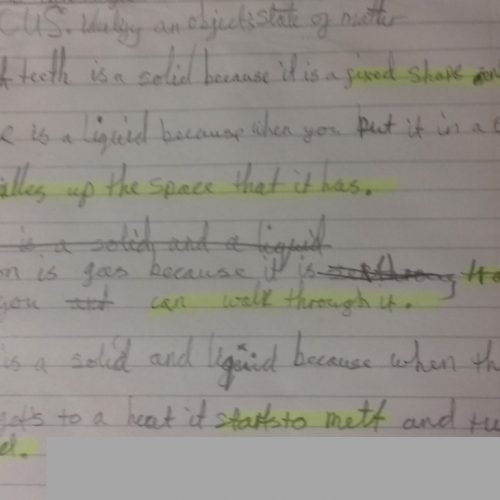 CUS. Justify an objects state of matter
teeth is a solid because it is a fixed shape
is a liquid because when you put it in a
up the space that it has.
is a solid and a liquid
is gas because it is
you can walk through it.
is a solid and liquid because when th
to a heat it starts to melt and tu